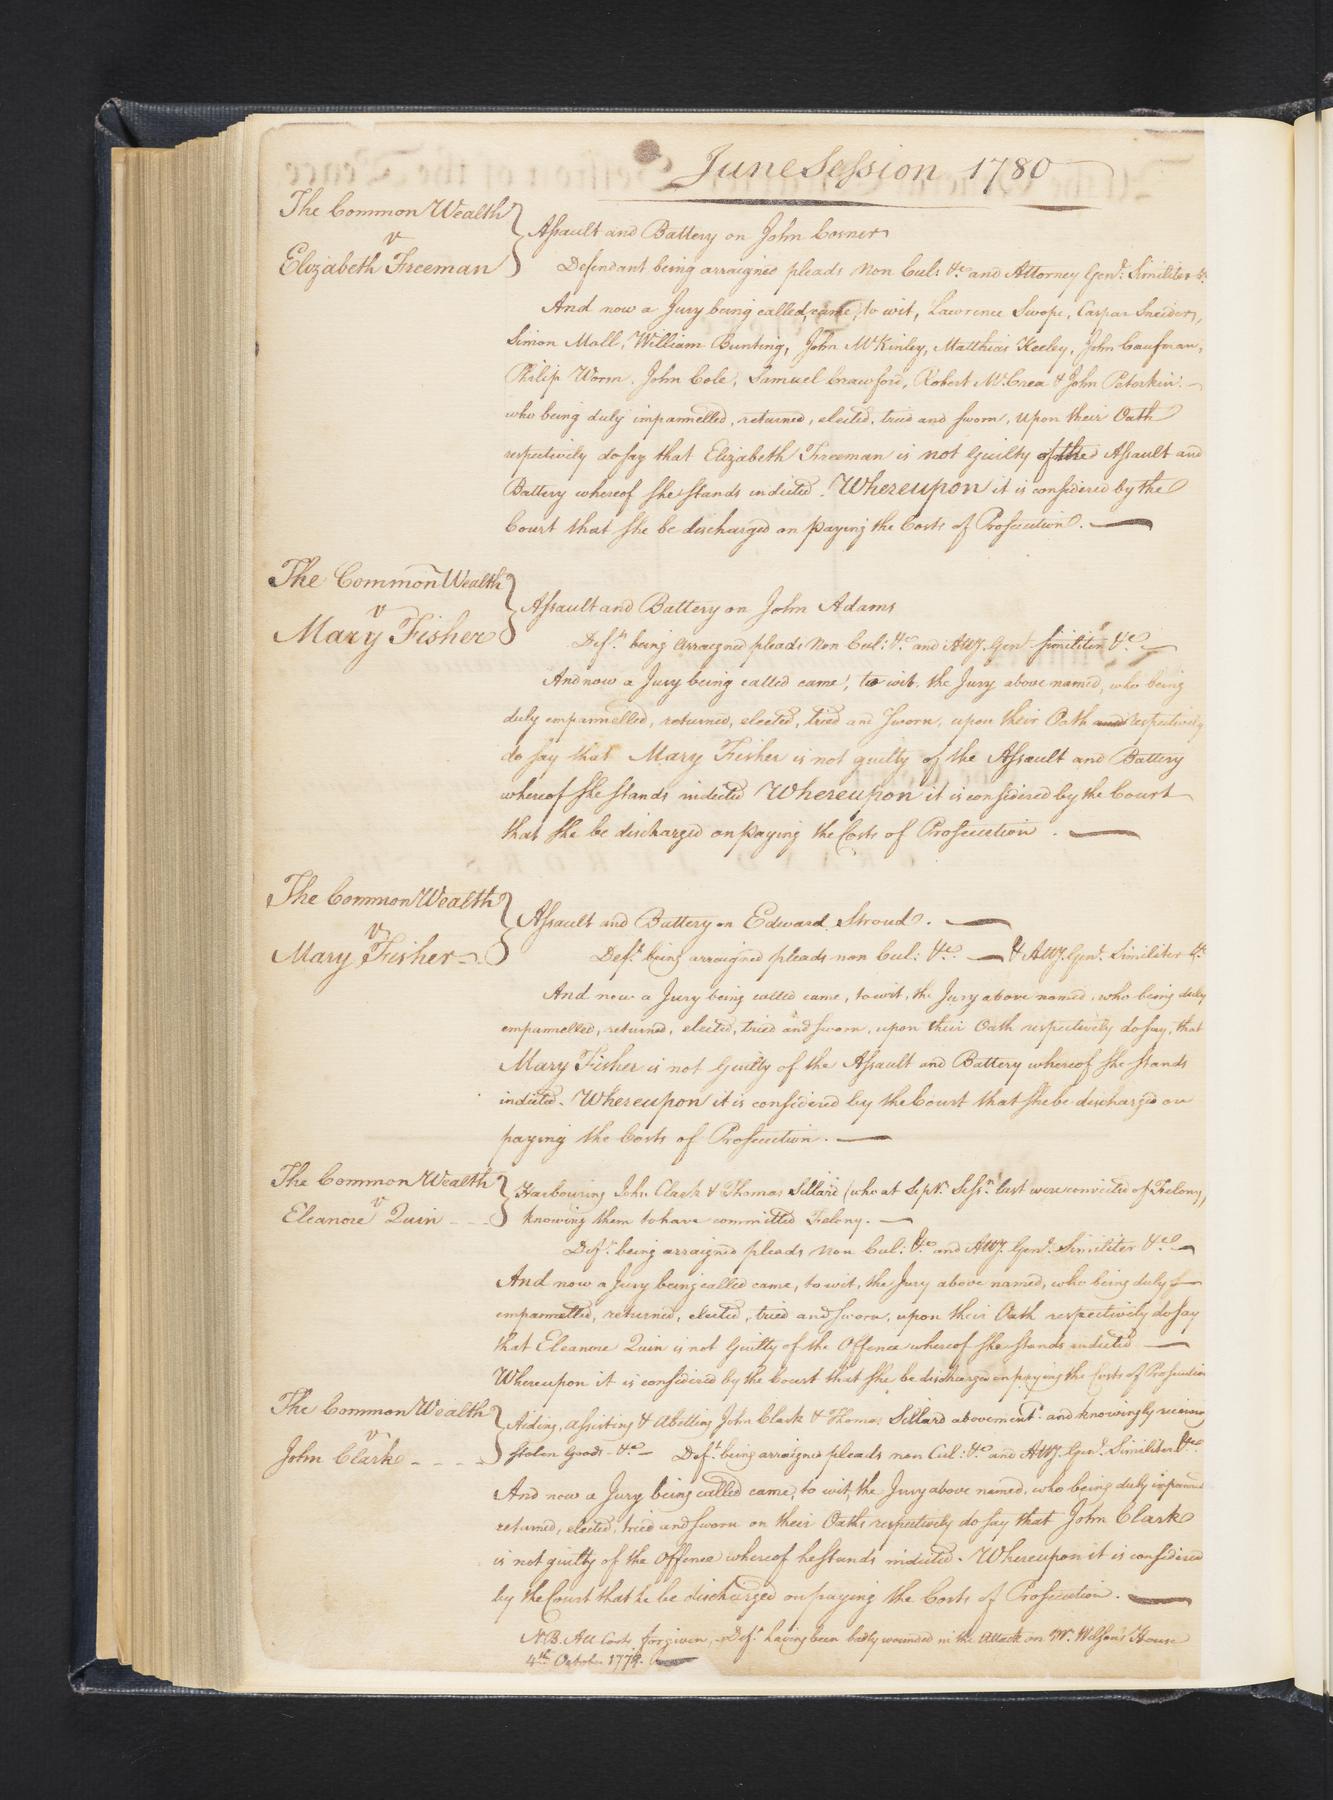 June Session 1780
The Common Wealth
v
Elizabeth Freeman
Assault and Battery on John Cosner
Defendant being arraigned pleads Non Cul: &c and Attorney Genl: Similiter &c
And now a Jury being called, came, to wit, Lawrence Swope, Caspar Sneider,
Simon Mall, William Bunting, John McKinley, Matthias Keeley, John Caufman,
Philip Worm, John Cole, Samuel Crawford, Robert McCrea & John Peterkin.
who being duly impannelled, returned, elected, tried and sworn, upon their Oath
respectively do say that Elizabeth Freeman is not Guilty of the Assault and
Battery whereof she stands indicted. Whereupon it is considered by the
Court that she be discharged on paying the Costs of Prosecution.
The Common Wealth
v
Mary Fisher
Assault and Battery on John Adams
Deft. being arraigned pleads Non Cul: &c and Atty. Genl similiter &c
And now a Jury being called came, to wit, the Jury above named, who being
duly empannelled, returned, elected, tried and Sworn, upon their Oath and respectively
do say that Mary Fisher is not guilty of the Assault and Battery
whereof she stands indicted Whereupon it is considered by the Court
that she be discharged on paying the Costs of Prosecution.
The Common Wealth
v
Mary Fisher
Assault and Battery on Edward Stroud.
Deft. being arraigned pleads non Cul: &c. — & Atty. Genl. Similiter &c
And now a Jury being called came, to wit, the Jury above named, who being duly
empannelled, returned, elected, tried and sworn, upon their Oath respectively do say, that
Mary Fisher is not Guilty of the Assault and Battery whereof she stands
indicted. Whereupon it is considered by the Court that she be discharged on
paying the Costs of Prosecution.
The Common Wealth
v
Eleanore Quin
Harbouring John Clark & Thomas Sillard (who at Septr. Sessn. last were convicted of Felony,)
knowing them to have committed Felony.
Deft. being arraigned pleads Non Cul: &c and Atty. Genl. Similiter &c
And now a Jury being called came, to wit, the Jury above named, who being duly
empannelled, returned, elected, tried and sworn, upon their Oath respectively do say
that Eleanore Quin is not Guilty of the Offence whereof she stands indicted
Whereupon it is considered by the Court that she be discharged on paying the Costs of Prosecution
The Common Wealth
v
John Clark
Aiding, assisting & abetting John Clark & Thomas Sillard abovement. and knowingly receiving
Stolen Goods &c — Deft. being arraigned pleads non Cul: &c and Atty. Genl. Similiter &c
And now a Jury being called came, to wit, the Jury above named, who being duly
returned, elected, tried and sworn on their Oaths respectively do say that John Clark
is not guilty of the Offence whereof he stands indicted. Whereupon it is considered
by the Court that he be discharged on paying the Costs of Prosecution.
N.B. All Costs forgiven, Deft. having been badly wounded in the Attack on Mr. Wilson's House
4th October 1779.